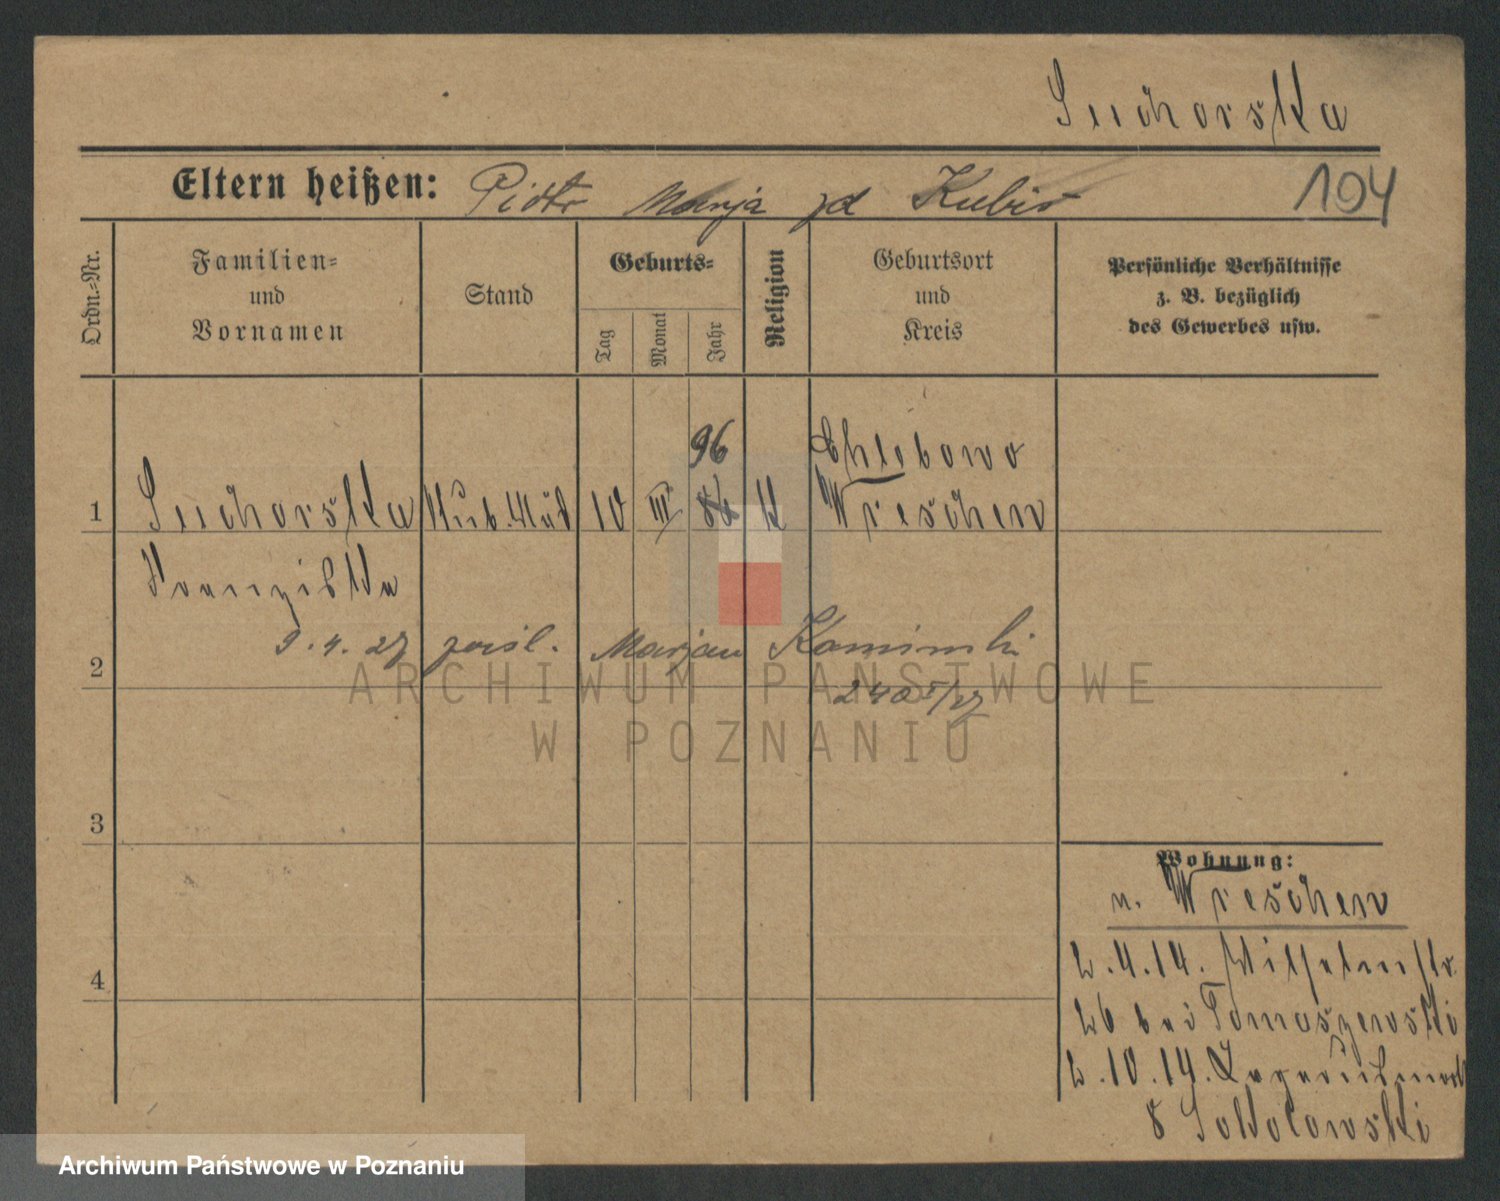 Suchorska
Eltern heißen: Piotr Marja zd Kubis
104
Ordn.-Nr.
Familien-
und
Vornamen
Stand
Geburts-
Tag
Monat
Jahr
Religion
Geburtsort
und
Kreis
Persönliche Verhältnisse
z. B. bezüglich
des Gewerbes usw.
96
Chlebowo
1 Suchorska 10 III 86 K Wreschen
Franziska
9.4.27 zaśl. Marjan Kaminski
2
240 I/27
3
Wohnung:
n. Wreschen
2.4.14. Wilhelmstr.
4
26 bei Tomaszewski
2.10.14.
8 Sokolowski
ARCHIWUM PAŃSTWOWE
W POZNANIU
Archiwum Państwowe w Poznaniu